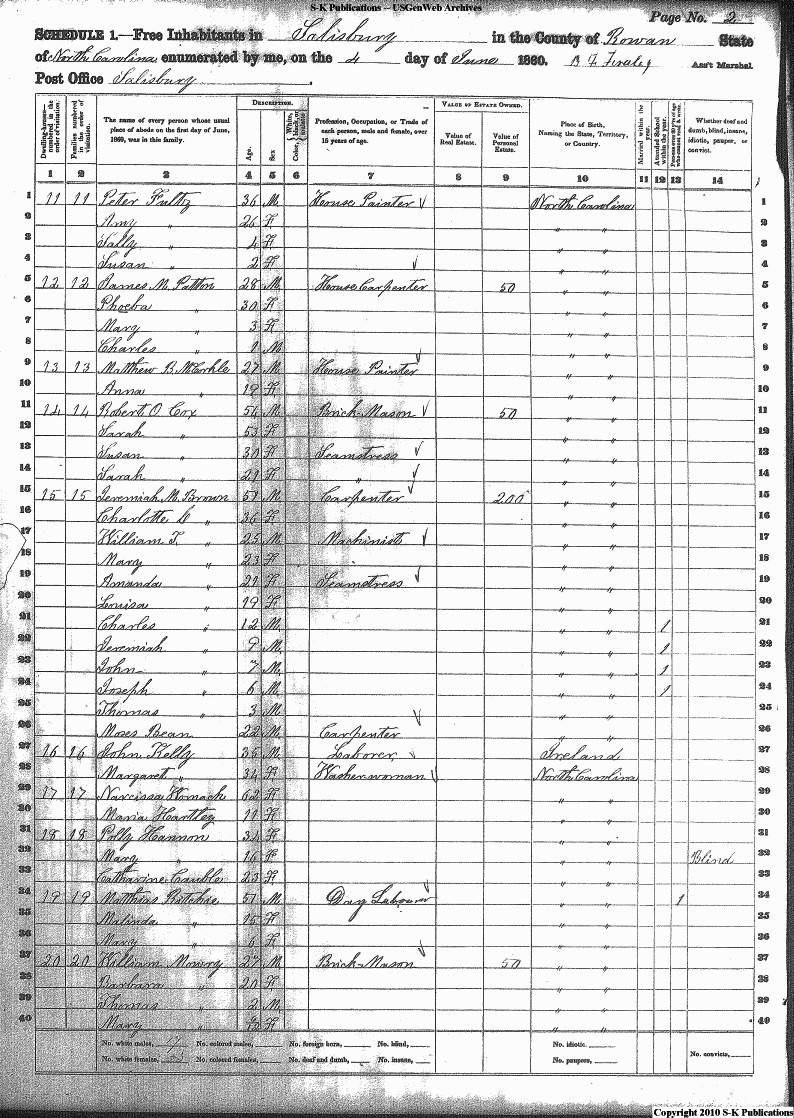 S-K Publications -- USGenWeb Archives
Page No. 2
SCHEDULE 1.—Free Inhabitants in Salisbury in the County of Rowan State
of North Carolina enumerated by me, on the 4 day of June 1860. Ass't Marshal
Post Office Salisbury.
Dwelling-houses—numbered in the order of visitation. Families numbered in the order of visitation. The name of every person whose usual place of abode on the first day of June, 1860, was in this family. DESCRIPTION. Age. Sex. Color, Profession, Occupation, or Trade of each person, male and female, over 15 years of age. VALUE OF ESTATE OWNED. Value of Real Estate. Value of Personal Estate. Place of Birth, Naming the State, Territory, or Country. Married within the year. Attended School within the year. Whether deaf and dumb, blind, insane, idiotic, pauper, or convict.
1 2 3 4 5 6 7 8 9 10 11 12 13 14
1 11 11 Peter Fultz 36 M House Painter North Carolina 1
2 Amy " 26 F " " 2
3 Sally " 4 F " " 3
4 Susan " 2 F " " 4
5 12 12 James M. Patton 28 M House Carpenter 50 " " 5
6 Phoeba " 30 F " " 6
7 Mary " 3 F " " 7
8 Charles " 1 M " " 8
9 13 13 Matthew B. McCorkle 27 M House Painter " " 9
10 Anna " 19 F " " 10
11 14 14 Robert O. Cox 54 M Brick-Mason 50 " " 11
12 Sarah " 53 F " " 12
13 Susan " 30 F Seamstress " " 13
14 Sarah " 21 F " " " 14
15 15 15 Jeremiah M. Brown 51 M Carpenter 200 " " 15
16 Charlotte C " 36 F " " 16
17 William T. " 25 M Machinist " " 17
18 Mary " 23 F " " 18
19 Amanda " 21 F Seamstress " " 19
20 Louisa " 19 F " " 20
21 Charles " 12 M. " " 1 21
22 Jeremiah " 9 M. " " 1 22
23 John " 7 M. " " 1 23
24 Joseph " 6 M. " " 1 24
25 Thomas " 3 M " " 25
26 Moses Bean 22 M Carpenter " " 26
27 16 16 John Kelly 35 M Laborer Ireland 27
28 Margaret " 34 F Washerwoman North Carolina 28
29 17 17 Narcissa Womack 62 F " " 29
30 Maria Hartley 11 F " " 30
31 18 18 Polly Hannon 34 F " " 31
32 Mary " 16 F " " Blind 32
33 Catharine Cauble 23 F " " 33
34 19 19 Matthias Ritchie 51 M Day Labourer " " 1 34
35 Malinda " 15 F " " 35
36 Mary " 6 F " " 36
37 20 20 William Mowry 27 M Brick-Mason 50 " " 37
38 Barbara " 20 F " " 38
39 Thomas " 2 M. " " 39
40 Mary " F " " 40
No. white males, 17 No. colored males, No. foreign born, No. blind, No. idiotic, No. convicts,
No. white females, 23 No. colored females, No. deaf and dumb, No. insane, No. paupers,
Copyright 2010 S-K Publications